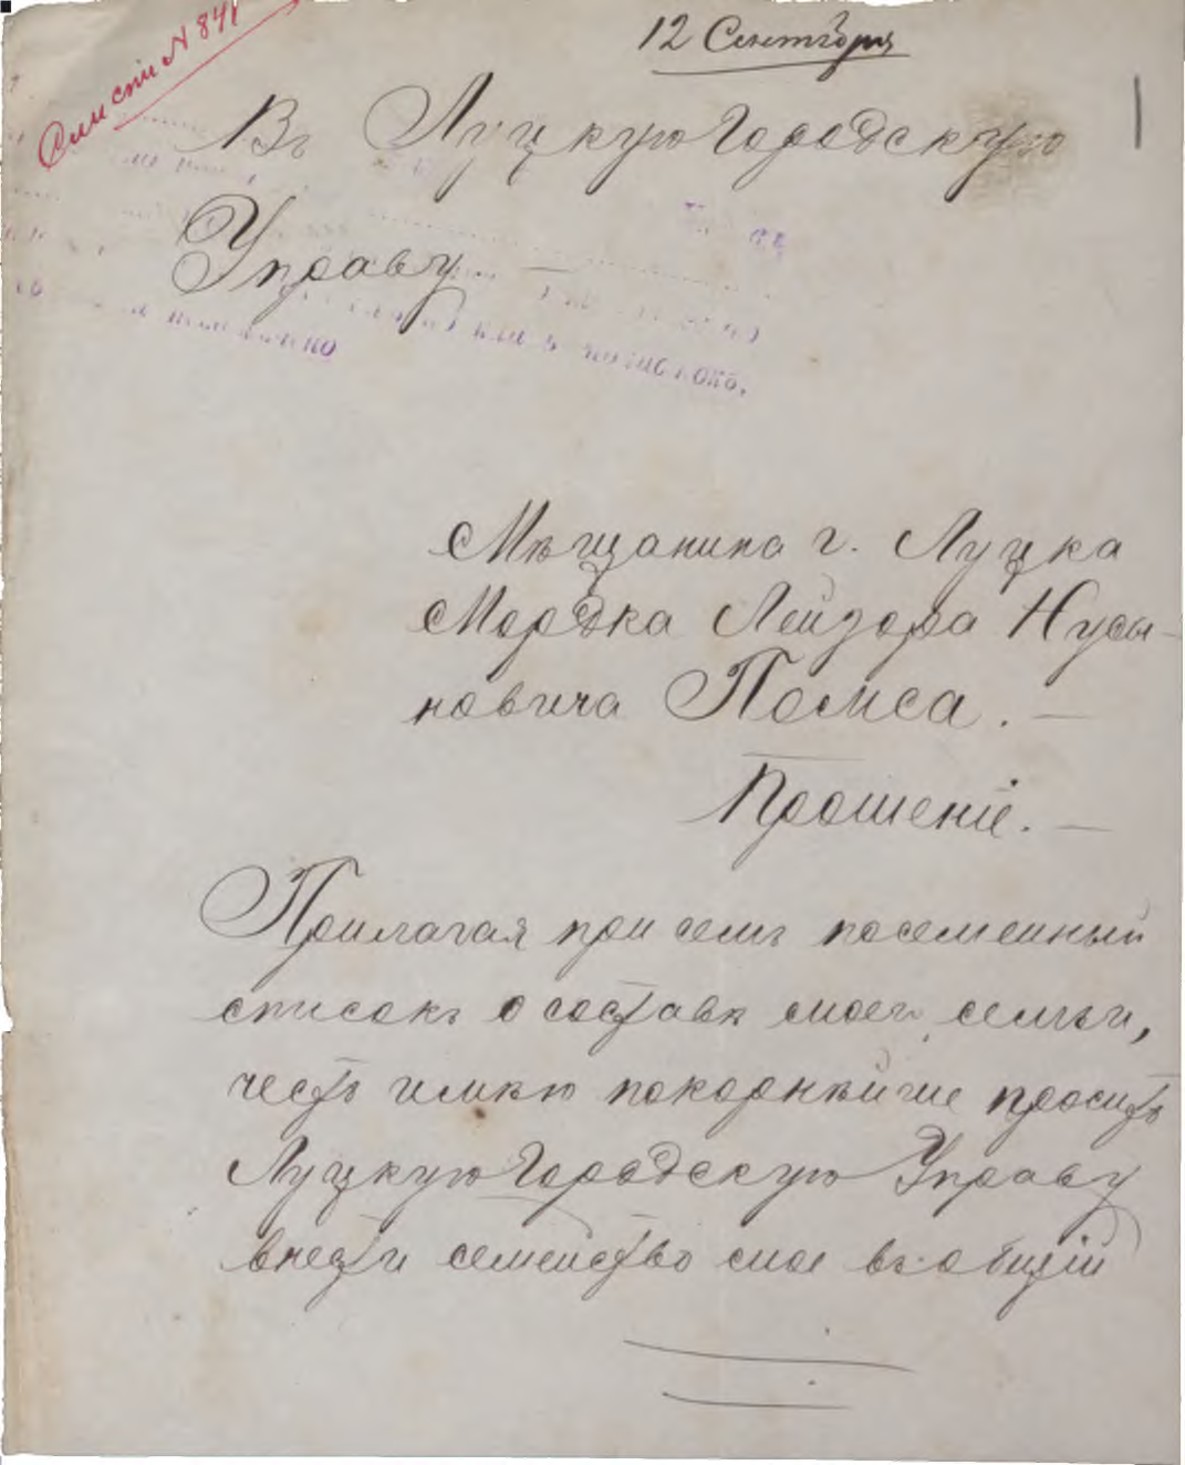 12 Сентября
№ 841
Въ Луцкую Городскую
Управу
Мѣщанина г. Луцка
Мордка Лейзора Нусы-
новича Помса.
Прошеніе.
Прилагая при семъ посемейный
списокъ о составѣ моей семьи,
честь имѣю покорнѣйше просить
Луцкую Городскую Управу
внести семейство мое въ общій